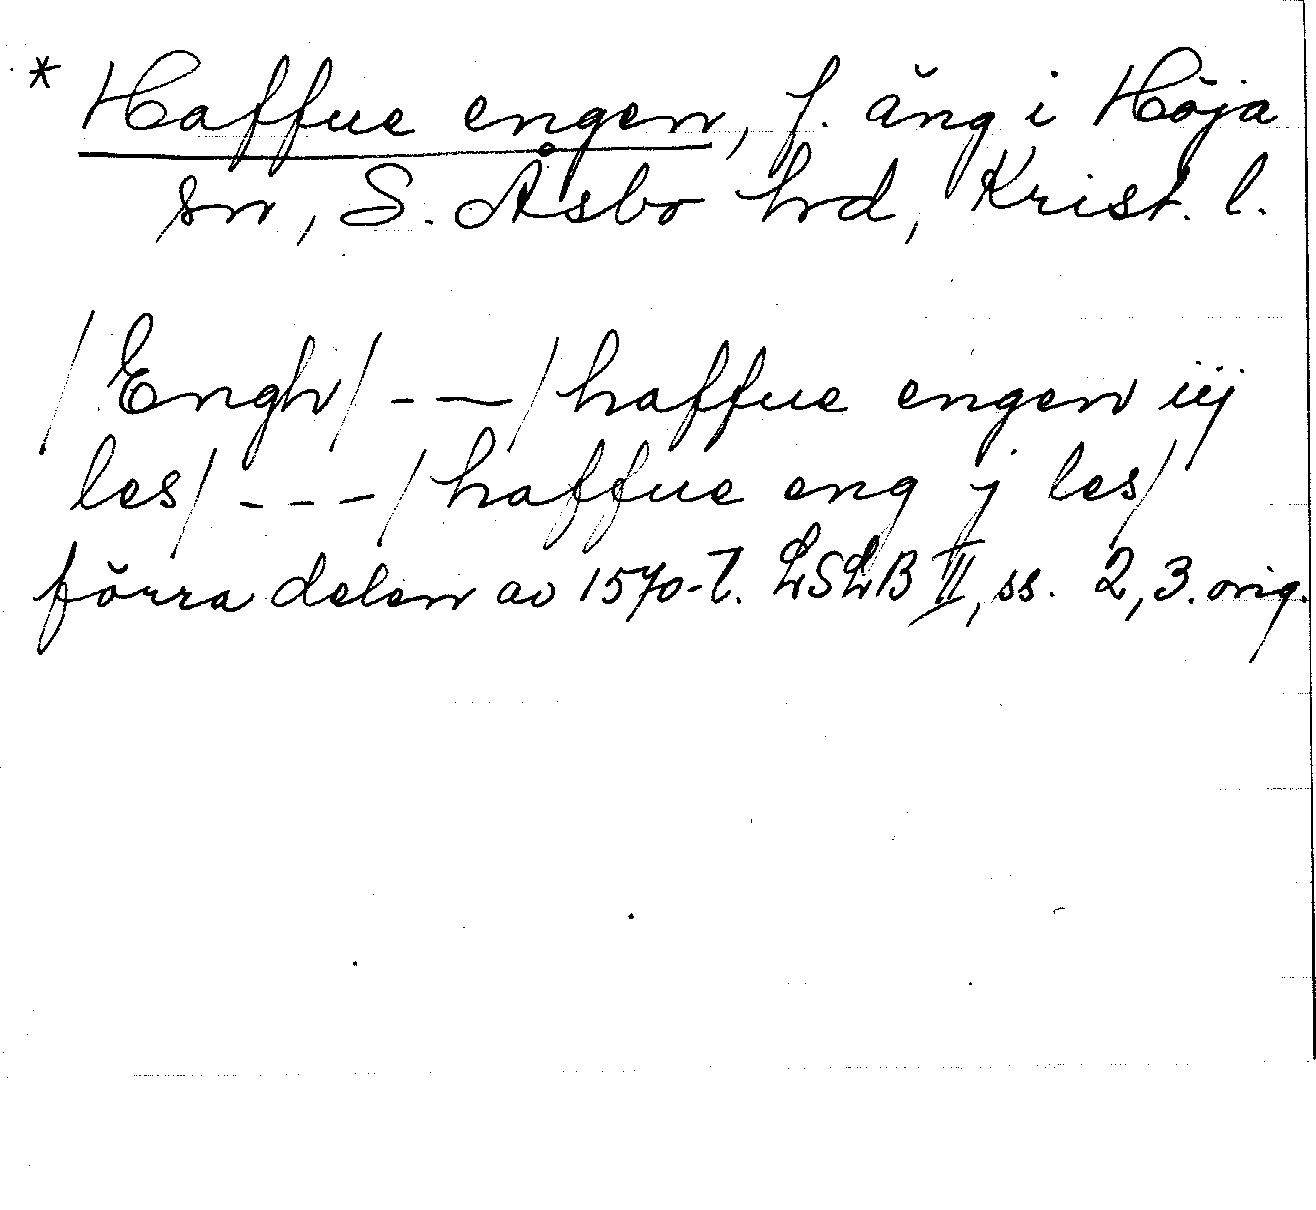 * Haffue engen, f. äng i Höja
sn, S. Åsbo hd, Krist. l.
/Engh/ - - -/haffue engen iij
les/ - - - /haffue eng j les/
förra delen av 1570-t. LSLB III, ss. 2, 3. orig.